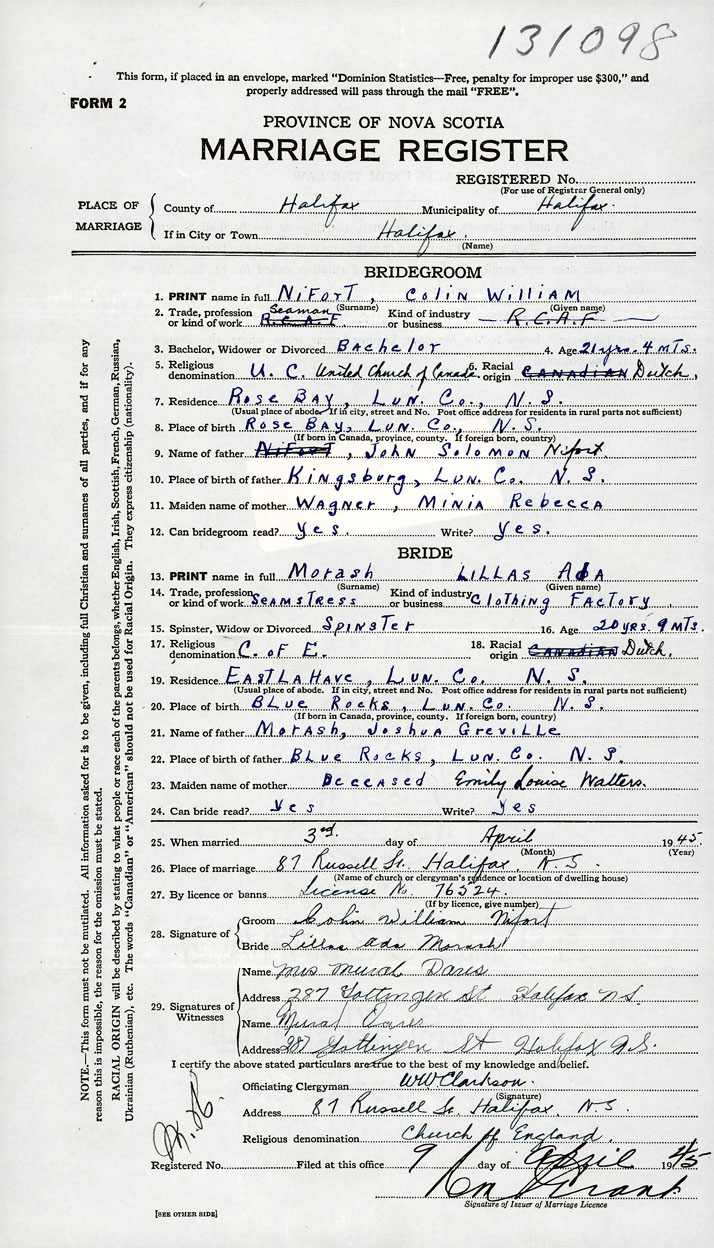 131098
This form, if placed in an envelope, marked "Dominion Statistics—Free, penalty for improper use $300," and
properly addressed will pass through the mail "FREE".
FORM 2
PROVINCE OF NOVA SCOTIA
MARRIAGE REGISTER
REGISTERED No.
(For use of Registrar General only)
PLACE OF MARRIAGE
County of Halifax Municipality of Halifax.
If in City or Town Halifax.
(Name)
BRIDEGROOM
1. PRINT name in full NiForT, Colin William
(Surname) (Given name)
2. Trade, profession or kind of work Seaman R.C.A.F. Kind of industry or business R.C.A.F
3. Bachelor, Widower or Divorced Bachelor 4. Age 21 yrs. 4 MTs.
5. Religious denomination U. C. United Church of Canada. 6. Racial origin CANADIAN Dutch.
7. Residence Rose Bay, Lun. Co., N. S.
(Usual place of abode. If in city, street and No. Post office address for residents in rural parts not sufficient)
8. Place of birth Rose Bay, Lun. Co., N. S.
(If born in Canada, province, county. If foreign born, country)
9. Name of father NiForT, John Solomon Nifort.
10. Place of birth of father Kingsburg, Lun. Co. N. S.
11. Maiden name of mother Wagner, Minia Rebecca
12. Can bridegroom read? Yes. Write? Yes.
BRIDE
13. PRINT name in full Morash LILLAS ADA
(Surname) (Given name)
14. Trade, profession or kind of work Seamstress Kind of industry or business Clothing Factory.
15. Spinster, Widow or Divorced Spinster 16. Age 20 yrs. 9 MTs.
17. Religious denomination C. of E. 18. Racial origin CANADIAN Dutch.
19. Residence East LaHave, Lun. Co. N. S.
(Usual place of abode. If in city, street and No. Post office address for residents in rural parts not sufficient)
20. Place of birth Blue Rocks, Lun. Co. N. S.
(If born in Canada, province, county. If foreign born, country)
21. Name of father Morash, Joshua Greville
22. Place of birth of father Blue Rocks, Lun. Co. N. S.
23. Maiden name of mother Deceased Emily Louise Walters.
24. Can bride read? Yes Write? Yes
25. When married 3rd. day of April 1945.
(Month) (Year)
26. Place of marriage 87 Russell St. Halifax, N.S.
(Name of church or clergyman's residence or location of dwelling house)
27. By licence or banns License No. 76524.
(If by licence, give number)
28. Signature of
Groom Colin William Nifort
Bride Lillas Ada Morash
29. Signatures of Witnesses
Name Mrs Mural Davis
Address 287 Gottingen St Halifax N.S.
Name Mural
Address 287 Gottingen St Halifax N.S.
I certify the above stated particulars are true to the best of my knowledge and belief.
Officiating Clergyman WW Clarkson.
(Signature)
Address 87 Russell St. Halifax. N.S.
Religious denomination Church of England.
Registered No. Filed at this office 9 day of April 1945
Signature of Issuer of Marriage Licence
[SEE OTHER SIDE]
NOTE.—This form must not be mutilated. All information asked for is to be given, including full Christian and surnames of all parties, and if for any
reason this is impossible, the reason for the omission must be stated.
RACIAL ORIGIN will be described by stating to what people or race each of the parents belongs, whether English, Irish, Scottish, French, German, Russian,
Ukrainian (Ruthenian), etc. The words "Canadian" or "American" should not be used for Racial Origin. They express citizenship (nationality).